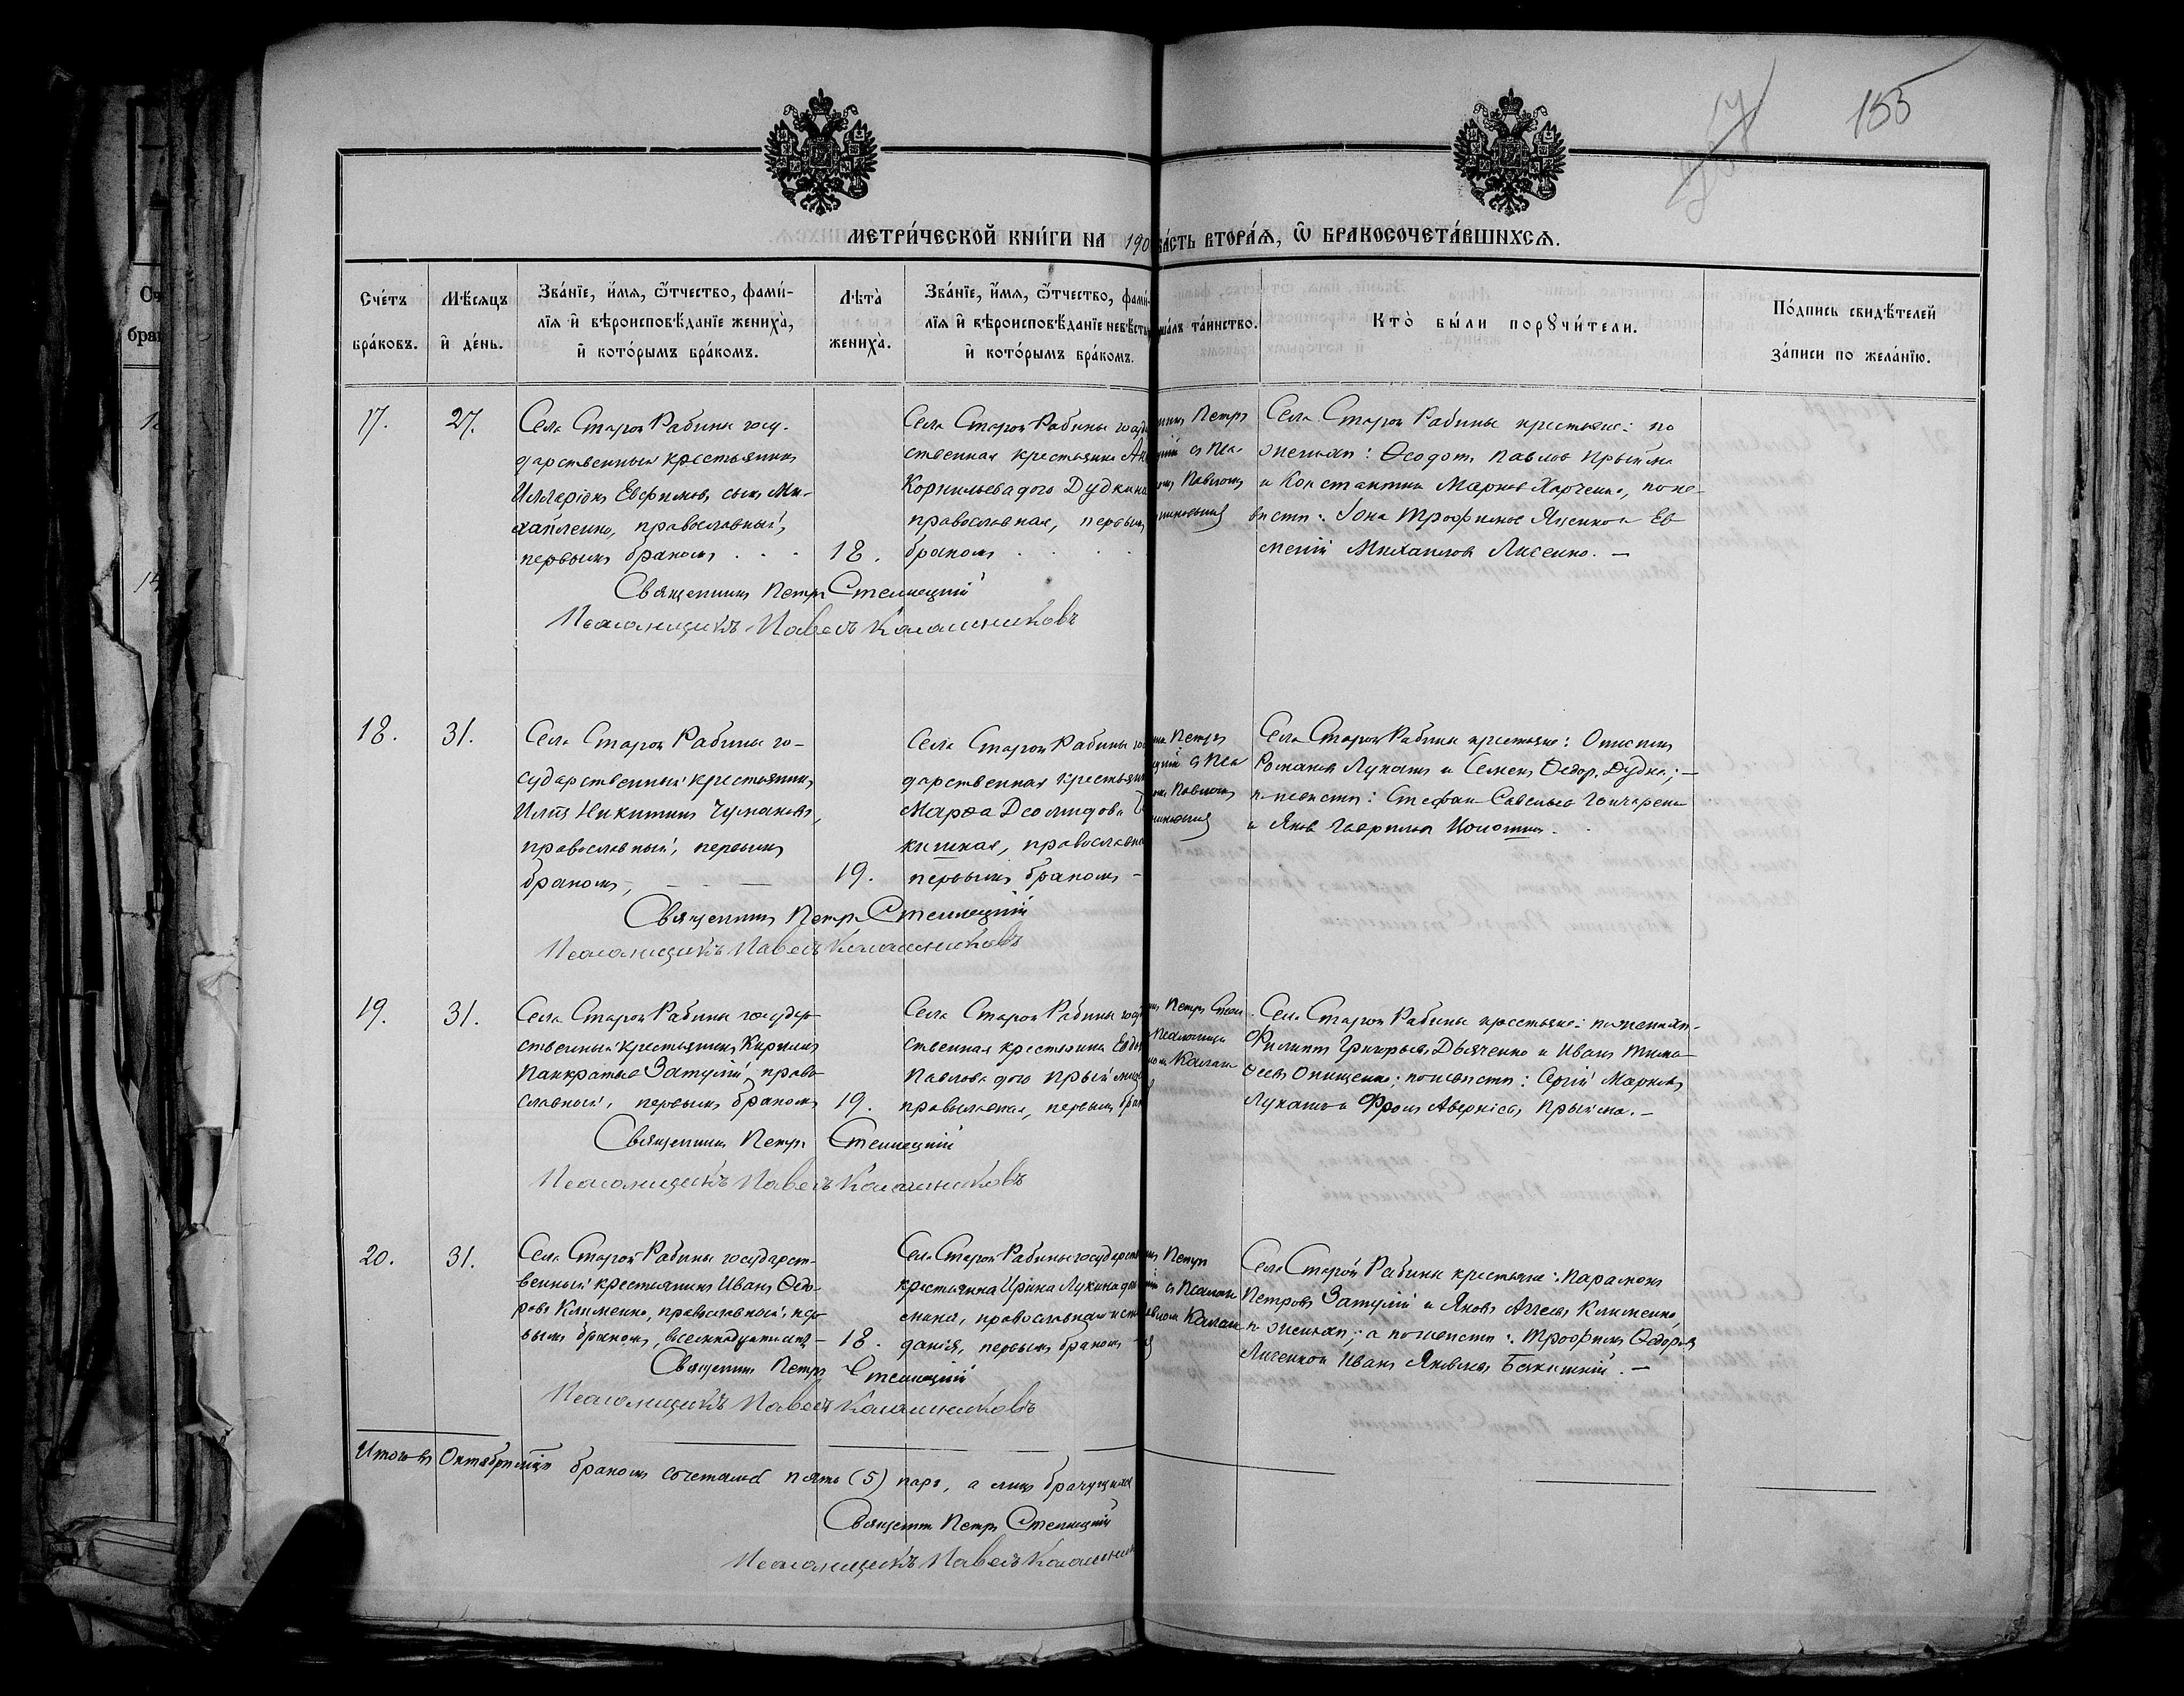 155
МЕТРИ́ЧЕСКОЙ КНИ́ГИ НА 190
ЧА́СТЬ ВТОРА́Я, Ѡ БРАКОСОЧЕТА́ВШИХСЯ.
Сче́тъ бра́ковъ.
Мѣ́сяцъ и де́нь.
Зва́нїе, и́мя, ѻ҆́тчество, фами́-
лїя и҆ вѣроисповѣ́данїе жениха̀,
и҆ кото́рымъ бра́комъ.
Лѣта̀
жениха̀.
Зва́нїе, и́мя, ѻ҆́тчество, фами́-
лїя и҆ вѣроисповѣ́данїе невѣ́сты
и҆ кото́рымъ бра́комъ.
та́инство.
Кто̀ бы́ли порꙋчи́тели.
По́дпись свидѣ́телей
за́писи по жела́нїю.
17.
27.
Села Старой Рабины госу-
дарственный крестьянинъ
Илларіонъ Евфимовъ сынъ Ми-
хайленко, православный,
первымъ бракомъ
18.
Села Старой Рабины госуд
ственная крестьянка
Корнильева дого Дудкина
православная, первым
бракомъ
Петръ
Павломъ
Села Старой Рабины крестьяне: по
женихѣ: Ѳеодотъ Павлов Прыйма
и Константинъ Марков Харченко, по не-
вѣстѣ: Іона Трофимов Яценко и Ев-
мений Михаилов Лисенко. —
Священникъ Петръ Стеллецкій
Псаломщикъ Павелъ Калашниковъ
18.
31.
Села Старой Рабины го-
сударственный крестьянинъ
Илія Никитинъ Чумаковъ,
православный, первымъ
бракомъ,
19.
Села Старой Рабины гос
дарственная крестьян
Марѳа Деомидова
православна
первымъ бракомъ —
Петръ
Павломъ
Села Старой Рабины крестьяне: Онисимъ
Романов Лукашъ и Семенъ Ѳедор. Дудка; —
по невѣстѣ: Стефан Савельев Гончаренко
и Яков Гаврилов
Священникъ Петръ Стеллецкій
Псаломщикъ Павелъ Калашниковъ
19.
31.
Села Старой Рабины государ-
ственный крестьянинъ Кирилъ
Панкратьев Затулій, право-
славный, первымъ бракомъ
19.
Села Старой Рабины госуд
ственная крестьянка Евдо
Павлова дого
православная, первымъ брак
Петръ Стел
Псаломщи
Калаш
Села Старой Рабины крестьяне: по женихѣ-
Филиппъ Григорьевъ Дьяченко и Иванъ Тимо-
ѳеевъ Онищенко; по невѣстѣ: Сергій Марковъ
Лукашъ и Фролъ Аверкіевъ Прыйма. —
Священникъ Петръ Стеллецкій
Псаломщикъ Павелъ Калашниковъ
20.
31.
Села Старой Рабины государст-
венный крестьянинъ Иванъ Ѳедо-
ровъ Клименко, православный, пер-
вымъ бракомъ, восемнадцати лѣтъ —
18.
Села Старой Рабины государств
крестьянка Ирина Лукина
православнаго испо
данія, первымъ бракомъ
Петръ
Псалом
Калаш
Села Старой Рабины крестьяне: Парамонъ
Петровъ Затулій и Яковъ Клименко
по женихѣ; а по невѣстѣ: Трофимъ Ѳедоровъ
Лисенко и Иванъ Яковлевъ
Священникъ Петръ Стеллецкій
Псаломщикъ Павелъ Калашниковъ
Итого въ Октябрѣ мѣсяцѣ бракомъ сочеталось пять (5) паръ, а лицъ брачущихся
Священникъ Петръ Стеллецкій
Псаломщикъ Павелъ